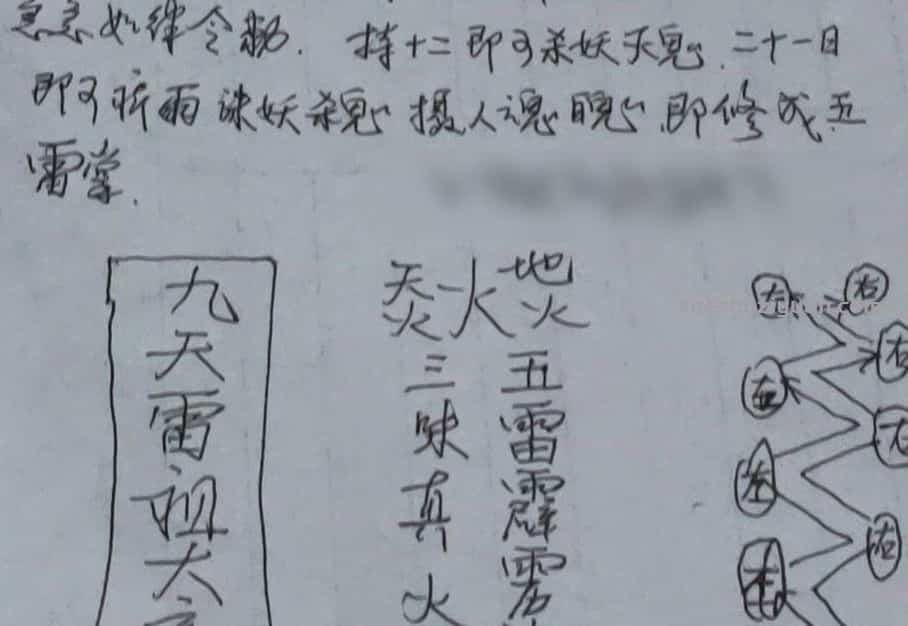 急急如律令敕. 持十二即可杀妖灭鬼. 二十一日
即可祈雨诛妖杀鬼摄人魂魄,即修成五
雷掌.
九天雷祖大
天火 人火 地火
三昧真火
五雷霹雳
左 右
左 右
左 右
左 右